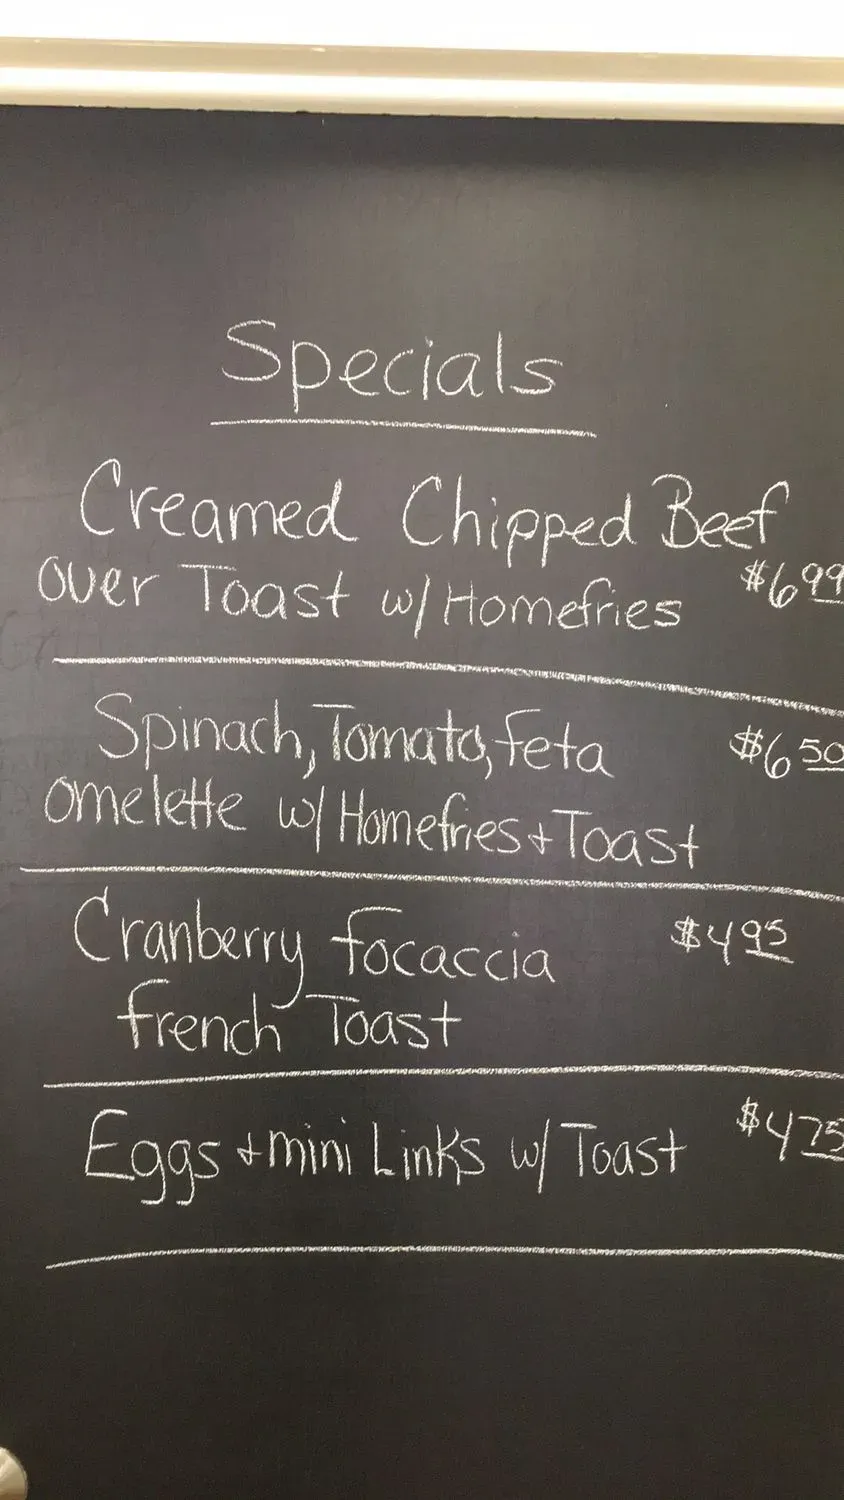 Specials
Creamed Chipped Beef
over Toast w/ Homefries $6 99
Spinach, Tomato, feta $6 50
omelette w/ Homefries + Toast
Cranberry focaccia $4 95
french Toast
Eggs + mini Links w/ Toast $4 75